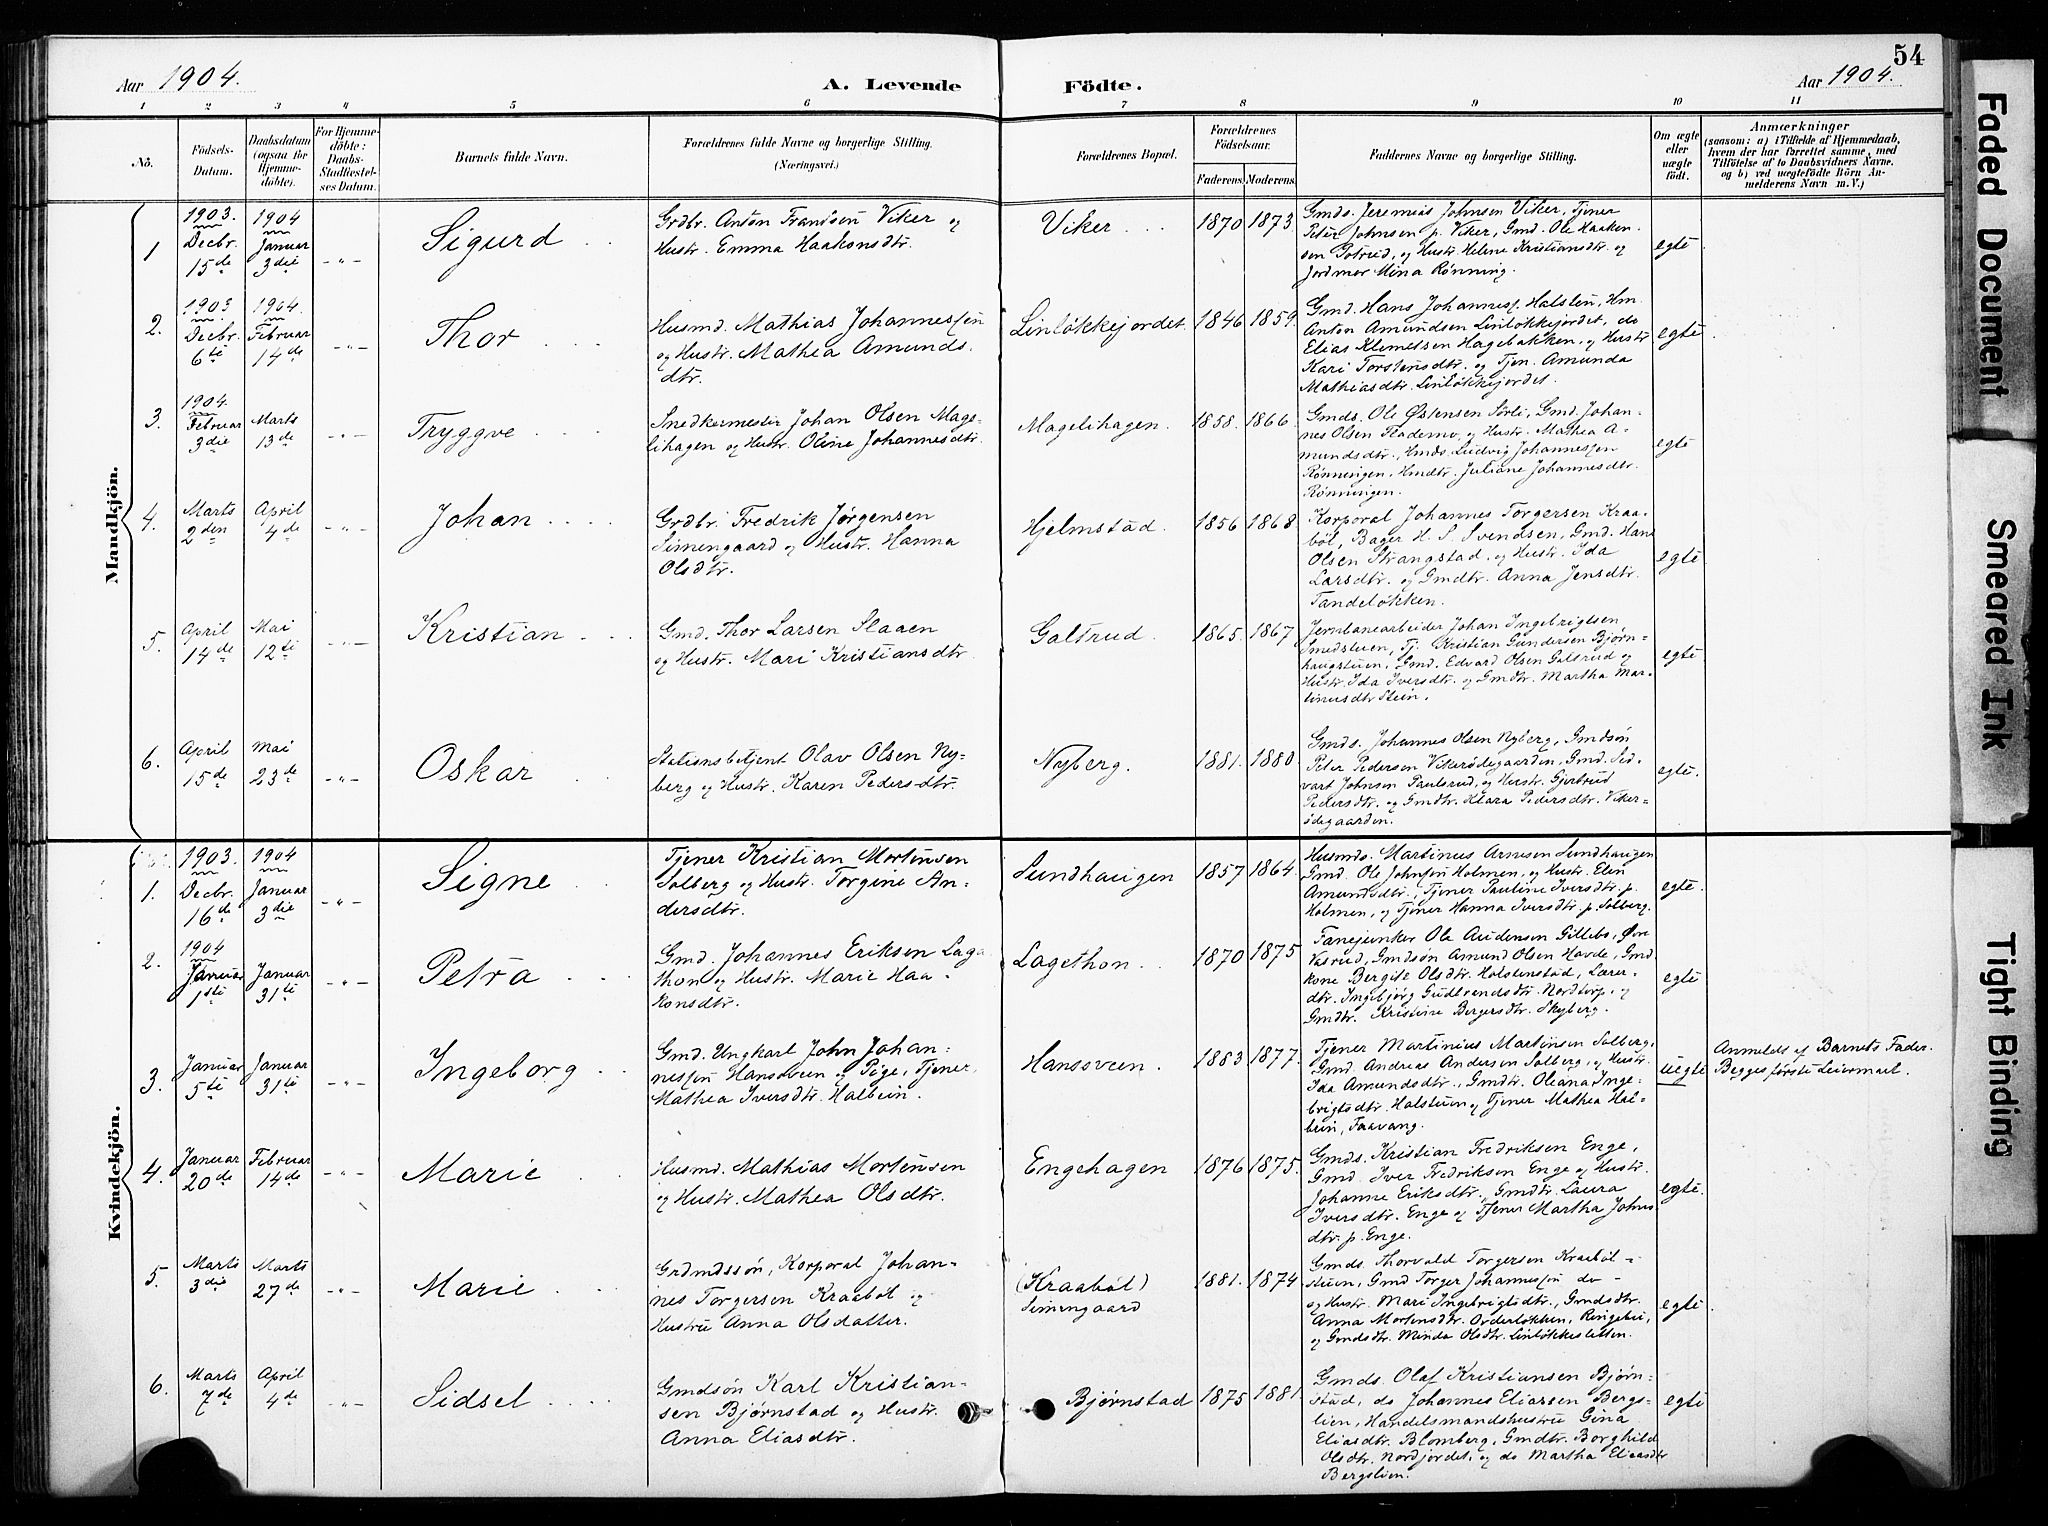 54
Aar 1904.
A. Levende
Födte.
Aar 1904.
1 2 3 4 5 6 7 8 9 10 11
No.
Födsels-
Datum.
Daabsdatum
(ogsaa for
Hjemme-
döbte).
For Hjemme-
döbte:
Daabs-
Stadfæstel-
ses Datum.
Barnets fulde Navn.
Forældrenes fulde Navne og borgerlige Stilling.
(Næringsvei.)
Forældrenes Bopæl.
Forældrenes
Födselsaar.
Faderens. Moderens.
Faddernes Navne og borgerlige Stilling.
Om ægte
eller
uægte
födt.
Anmærkninger
(saasom: a) i Tilfælde af Hjemmedaab,
hvem der har forrettet samme, med
Tilföielse af to Daabsvidners Navne.
og b) ved uægtefödte Börn An-
melderens Navn m. V.)
Mandkjön.
1
1903.
Decbr.
15de
1904
Januar
3die
-"-
Sigurd
Grdbr. Anton Frandsen Viker og
Hustr. Emma Haakonsdtr.
Viker
1870 1873
Gmds. Jeremias Johnsen Viker, Tjener
Peter Johnsen p. Viker, Gmd. Ole Haaken-
sen Gotrud, og Hustr. Helene Kristiansdtr. og
Jordmor Mina Rönning.
egte
2.
1903
Decbr.
6te
1904.
Februar
14de
-"-
Thor
Husmd. Mathias Johannessen
og Hustr. Mathea Amunds-
dtr.
Linløkkejordet.
1846 1859.
Gmd. Hans Johanness. Halsten, Hm.
Anton Amundsen Linløkkejordet, do
Elias Klemetsen Hagebakken, og Hustr.
Kari Torstensdtr. og Tjen. Amunda
Mathiasdtr. Linløkkejordet.
egte
3.
1904.
Februar
3die
Marts
13de
-"-
Tryggve
Snedkermester Johan Olsen Mage-
lihagen og Hustr. Oline Johannesdtr.
Magelihagen.
1858. 1866
Gmds. Ole Østensen Sørli, Gmd. Johan-
nes Olsen Flademo, og Hustr. Mathea A-
mundsdtr., Hmds. Ludvig Johannessen
Rønningen, Hmdtr. Juliane Johannesdtr.
Rønningen.
egte
4.
Marts
2den
April
4de
-"-
Johan
Grdbr. Fredrik Jørgensen
Simengaard og Hustr. Hanna
Olsdtr.
Hjelmstad.
1856 1868
Korporal Johannes Torgersen Kraa-
bøl, Bager H. S. Svendsen, Gmd. Hans
Olsen Strangstad, og Hustr. Ida
Larsdtr. og Gmdtr. Anna Jensdtr.
Tandeløkken.
egte
5.
April
14de
Mai
12te
-"-
Kristian
Gmd. Thor Larsen Slaaen
og Hustr. Mari Kristiansdtr
Galtrud.
1865. 1867
Jernbanearbeider Johan Ingebrigtsen
Smedstuen, Tj. Kristian Gundersen Bjørn-
haugstuen, Gmd. Edvard Olsen Galtrud og
Hustr. Ida Iversdtr. og Gmdtr. Martha Mar-
tinusdtr Stein.
egte
6.
April
15de
Mai
23de
-"-
Oskar
Stationsbetjent Olav Olsen Ny-
berg og Hustr. Karen Pedersdtr.
Nyberg.
1881. 1880
Gmds. Johannes Olsen Nyberg, Gmdsøn
Peter Pedersen Vikerødegaarden, Gmd. Sid-
vart Johnsen Paulsrud, og Hustr. Gjertrud
Pedersdtr. og Gmdtr. Klara Pedersdtr. Viker-
ødegaarden.
egte.
Kvindekjön.
1.
1903.
Decbr.
16de
1904
Januar
3die
-"-
Signe
Tjener Kristian Mortensen
Solberg og Hustr. Torgine An-
dersdtr.
Sundhaugen
1857 1864.
Husmds. Martinus Arnesen Sundhaugen
Gmd. Ole Johnsen Holmen, og Hustr. Elen
Amundsdtr., Tjener Pauline Iversdtr. p.
Holmen, og Tjener Hanna Iversdtr. p. Solberg.
egte.
2.
1904
Januar
1ste
Januar
31te
-"-
Petra
Gmd. Johannes Eriksen Laga
thon og Hustr. Marie Haa-
konsdtr.
Lagethon.
1870 1875
Fanejunker Ole Audensen Gillebo, Øvre
Vasrud, Gmdsøn Amund Olsen Hovde, Gmd
kone Bergite Olsdtr. Holstenstad, Lærer-
dtr. Ingebjørg Gudbrandsdtr. Nordtorp, og
Gmdtr. Kristine Bergersdtr. Skyberg.
egte
3.
Januar
5te
Januar
31te
-"-
Ingeborg
Gmd. Ungkarl John Johan-
nessen Hansveen og Pige, Tjener
Mathea Iversdtr. Halbein.
Hansveen.
1883 1877.
Tjener Martinius Martinsen Solberg,
Gmd. Andreas Andersen Solberg, og Hustr.
Ida Amundsdtr., Gmdtr. Oleana Inge-
brigtsdtr. Halstuen og Tjener Mathea Hal-
bein, Faavang.
uegte
Anmeldt af Barnets Fader.
Begges første Leiermaal.
4.
Januar
20de
Februar
14de
-"-
Marie
Husmd. Mathias Mortensen
og Hustr. Mathea Olsdtr.
Engehagen
1876 1875.
Gmds. Kristian Fredriksen Enge,
Gmd. Iver Fredriksen Enge og Hustr.
Johanne Eriksdtr., Gmdtr. Laura
Iversdtr. Enge og Tjener Martha Johns-
dtr. p. Enge.
egte.
5.
Marts
3die
Marts
27de
-"-
Marie
Grdmdssøn, Korporal Johan-
nes Torgersen Kraabøl og
Hustru Anna Olsdatter.
(Kraabøl)
Simengaard
1881. 1874
Gmds. Thorvald Torgersen Kraabøl-
stuen, Gmd Torger Johannessen do -
og Hustr. Mari Ingebrigtsdtr., Gmdsdtr.
Anna Mortensdtr. Odderløkken, Ringebu,
og Gmdsdtr. Minda Olsdtr. Linløkkesletten.
egte
6.
Marts
7de
April
4de
-"-
Sidsel
Gmdsøn Karl Kristian-
sen Bjørnstad og Hustr.
Anna Eliasdtr.
Bjørnstad
1875 1881.
Gmds. Olaf Kristiansen Bjørn-
stad, do Johannes Eliassen Bergs-
lien, Handelsmandshustru Gina
Eliasdtr. Blomberg, Gmdtr. Borghild
Olsdtr. Nordjordet, og do Martha Eliasdtr
Bergslien.
egte
Faded Document
Smeared Ink
Tight Binding